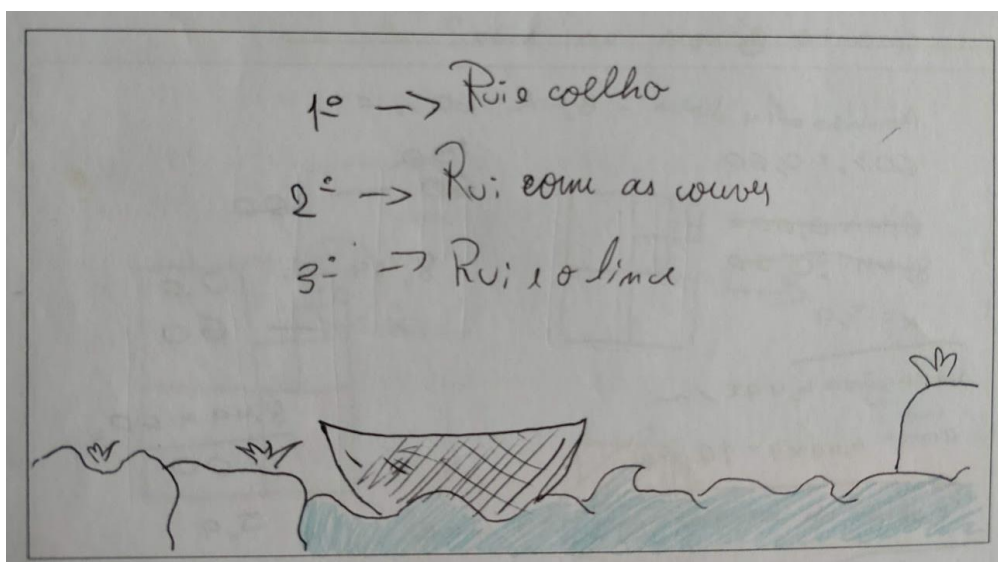 1º → Rui e coelho
2º → Rui com as couves
3º → Rui e o lince